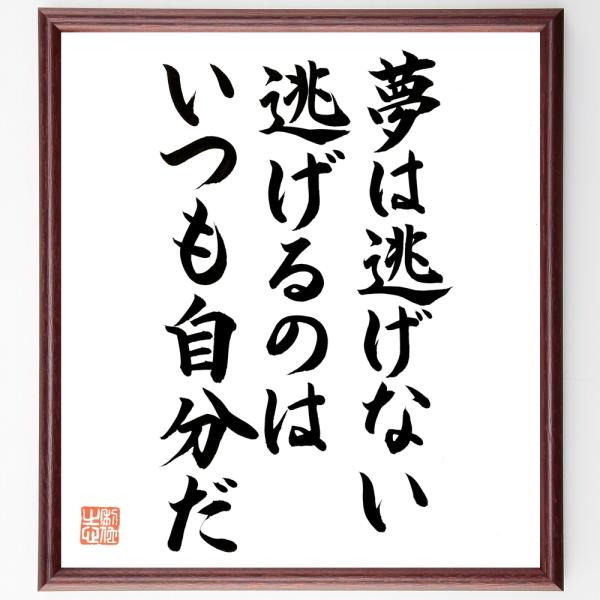 夢は逃げない
逃げるのは
いつも自分だ